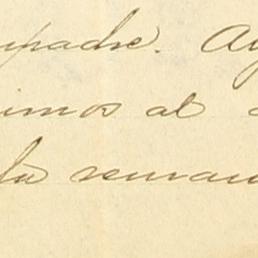 padre. Ay
imos al
la seman